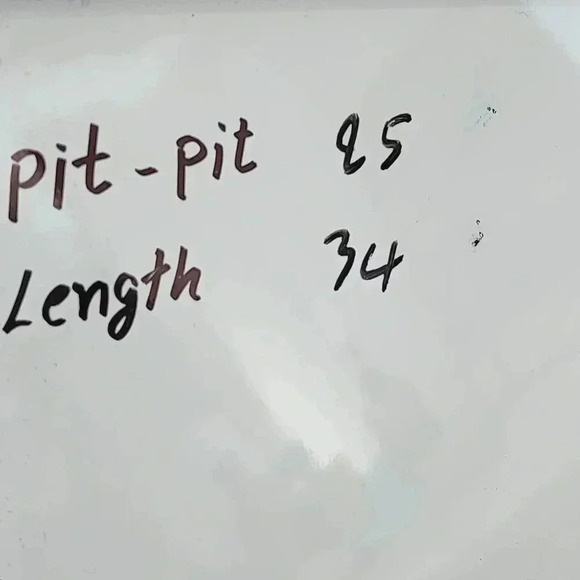 pit - pit 25
Length 34